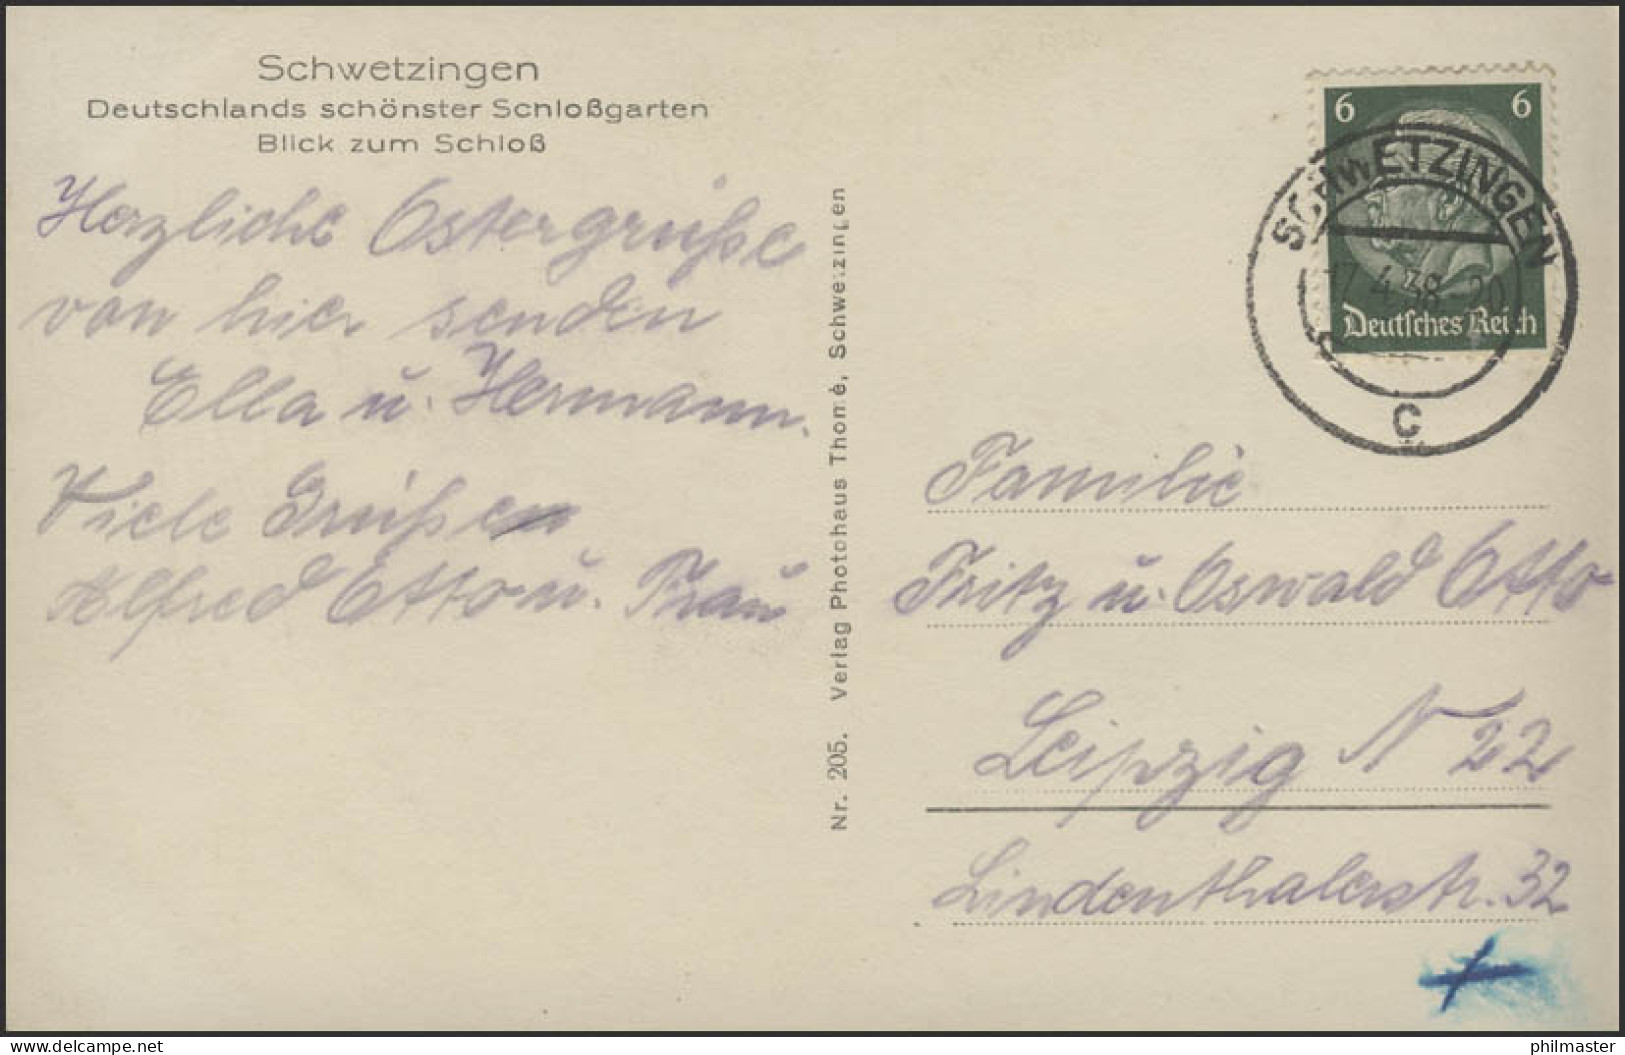 Schwetzingen
Deutschlands schönster Schloßgarten
Blick zum Schloß
Herzliche Ostergrüße
von hier senden
Ella u. Hermann.
Viele Grüße
Alfred Otto u. Frau
Nr. 205. Verlag Photohaus Thomé, Schwetzingen
6 6
Deutsches Reich
SCHWETZINGEN
17.4.38
c
Familie
Fritz u. Oswald Otto
Leipzig N 22
Lindenthalerstr. 32
www.delcampe.net
philmaster